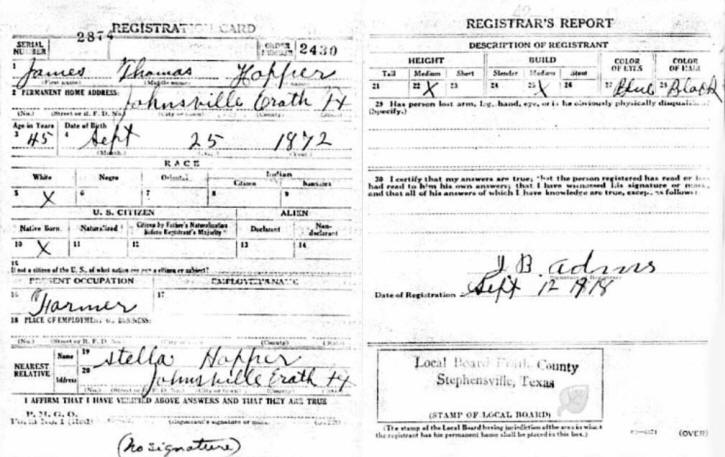 REGISTRATION CARD
SERIAL NUMBER 2874 ORDER NUMBER 2430
1 James Thomas Hopper
(First name) (Middle name)
2 PERMANENT HOME ADDRESS:
Johnsville Erath Tx
(No.) (Street or R. F. D. No.) (City or town) (County) (State)
Age in Years Date of Birth
3 45 4 Sept 25 1872
(Month.) (Year.)
RACE
White Negro Oriental Indian
Citizen Noncitizen
5 X 6 7 8 9
U. S. CITIZEN ALIEN
Native Born Naturalized Citizen by Father's Naturalization Before Registrant's Majority Declarant Non-declarant
10 X 11 12 13 14
15
If not a citizen of the U. S., of what nation are you a citizen or subject?
PRESENT OCCUPATION EMPLOYER'S NAME
16 Farmer 17
18 PLACE OF EMPLOYMENT OR BUSINESS:
(No.) (Street or R. F. D. No.) (County) (State)
NEAREST RELATIVE Name 19 Stella Hopper
Address 20 Johnsville Erath Tx
(No.) (Street or R. F. D. No.) (City or town) (County) (State)
I AFFIRM THAT I HAVE VERIFIED ABOVE ANSWERS AND THAT THEY ARE TRUE
P. M. G. O.
Form No. 1 (Red) (Registrant's signature or mark)
(No signature)
REGISTRAR'S REPORT
DESCRIPTION OF REGISTRANT
HEIGHT BUILD COLOR OF EYES COLOR OF HAIR
Tall Medium Short Slender Medium Stout
21 22 X 23 24 25 X 26 27 Blue 28 Black
29 Has person lost arm, leg, hand, eye, or is he obviously physically disqualified?
(Specify.)
30 I certify that my answers are true; that the person registered has read or has
had read to him his own answers; that I have witnessed his signature or mark,
and that all of his answers of which I have knowledge are true, except as follows:
J. B. Adms
Date of Registration Sept 12 1918
Local Board Erath County
Stephensville, Texas
(STAMP OF LOCAL BOARD)
(The stamp of the Local Board having jurisdiction of the area in which
the registrant has his permanent home shall be placed in this box.)
(OVER)